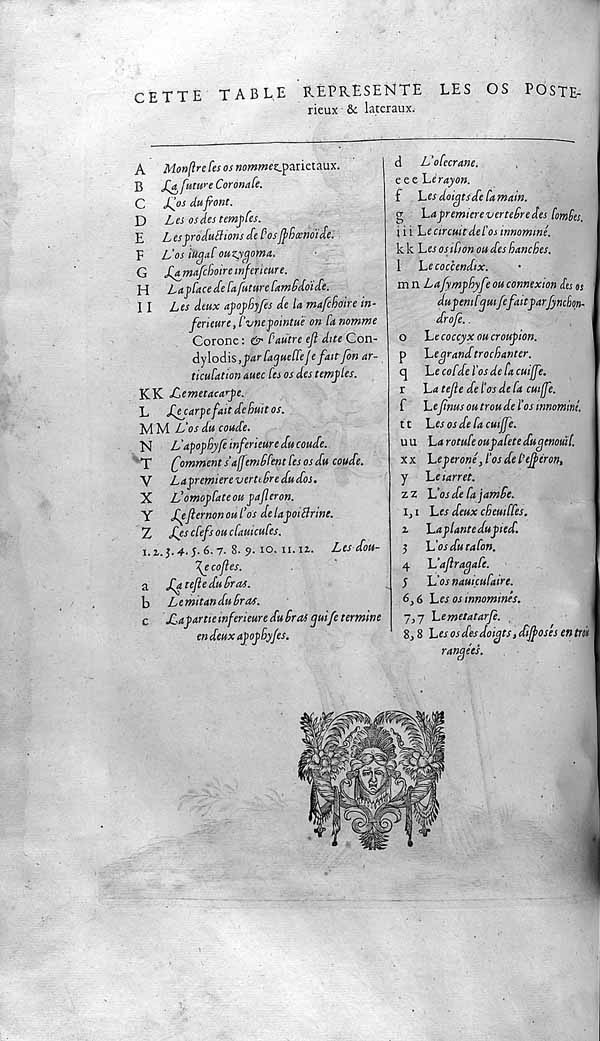 CETTE TABLE REPRESENTE LES OS POSTE-
rieux & lateraux.
A Monſtre les os nommez parietaux.
B La ſuture Coronale.
C L'os du front.
D Les os des temples.
E Les productions de l'os ſphœnoïde.
F L'os iugal ou zygoma.
G La maſchoire inferieure.
H La place de la ſuture lambdoïde.
I I Les deux apophyſes de la maſchoire in-
ferieure, l'vne pointuë on la nomme
Corone: & l'autre eſt dite Con-
dylodis, par laquelle ſe fait ſon ar-
ticulation auec les os des temples.
KK Le metacarpe.
L Le carpe fait de huit os.
MM L'os du coude.
N L'apophyſe inferieure du coude.
T Comment s'aſſemblent les os du coude.
V La premiere vertebre du dos.
X L'omoplate ou paſleron.
Y Le ſternon ou l'os de la poictrine.
Z Les clefs ou clauicules.
1. 2. 3. 4. 5. 6. 7. 8. 9. 10. 11. 12. Les dou-
ze coſtes.
a La teſte du bras.
b Le mitan du bras.
c La partie inferieure du bras qui ſe termine
en deux apophyſes.
d L'olecrane.
e e e Le rayon.
f Les doigts de la main.
g La premiere vertebre des lombes.
i i i Le circuit de l'os innominé.
k k Les os ilion ou des hanches.
l Le coccendix.
m n La ſymphyſe ou connexion des os
du penil qui ſe fait par ſynchon-
droſe.
o Le coccyx ou croupion.
p Le grand trochanter.
q Le col de l'os de la cuiſſe.
r La teſte de l'os de la cuiſſe.
ſ Le ſinus ou trou de l'os innominé.
t t Les os de la cuiſſe.
u u La rotule ou palete du genouïl.
x x Le peroné, l'os de l'eſperon,
y Le iarret.
z z L'os de la jambe.
1, 1 Les deux cheuilles.
2 La plante du pied.
3 L'os du talon.
4 L'aſtragale.
5 L'os nauiculaire.
6, 6 Les os innominés.
7, 7 Le metatarſe.
8, 8 Les os des doigts, diſpoſés en trois
rangées.